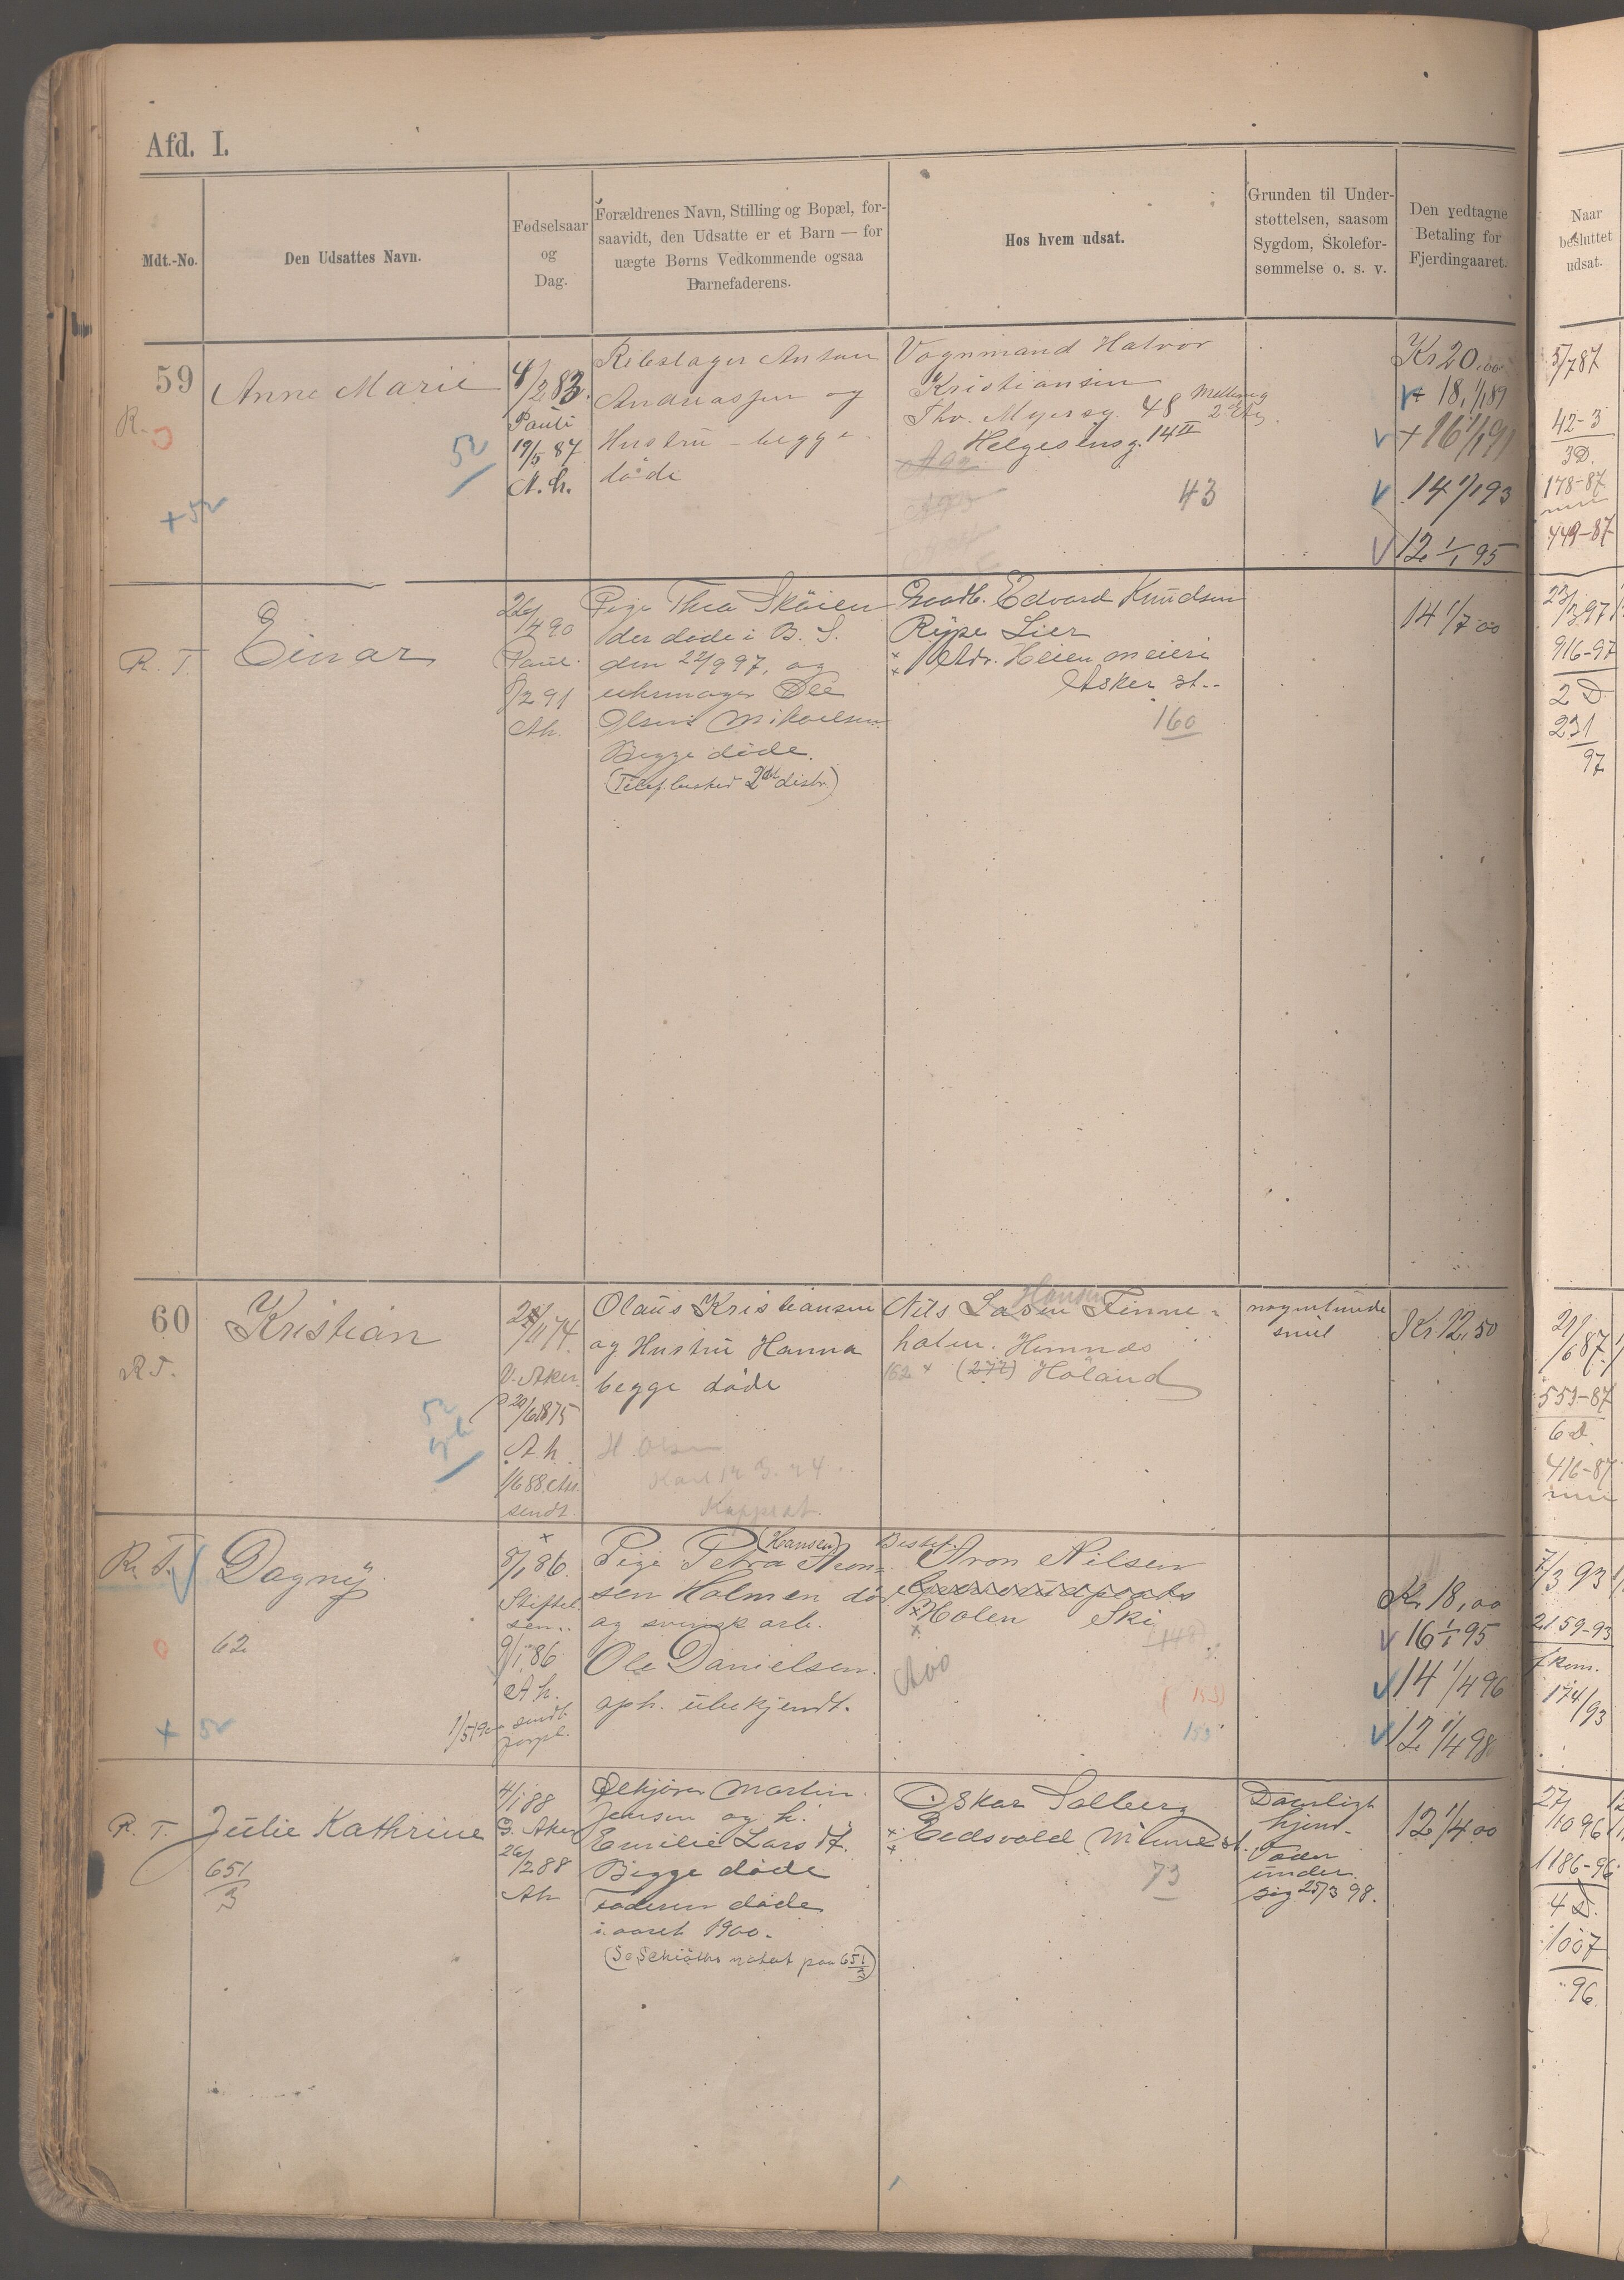 Afd. I.
Mdt.-No.
Den Udsattes Navn.
Fødselsaar
og
Dag.
Forældrenes Navn, Stilling og Bopæl, for-
saavidt, den Udsatte er et Barn — for
uægte Børns Vedkommende ogsaa
Barnefaderens.
Hos hvem udsat.
Grunden til Under-
støttelsen, saasom
Sygdom, Skolefor-
sømmelse o. s. v.
Den vedtagne
Betaling for
Fjerdingaaret.
Naar
besluttet
udsat.
59
R.
Anne Marie
52
+ 52
4/2 83.
Pauli
19/5 87
A. h.
Rebslager Anton
Andreassen og
Hustru - begge
døde
Vognmand Halvor
Kristiansen
Thv. Myersg. 48
Helgesensg. 14 II
43
Kr 20,00
+ 18, 1/1 89
+ 16 1/1 91
14 1/1 93
12 1/1 95
5/7 87
42-3
3 D.
178-87
449-87
R. T.
Einar
26/4 90
Paul.
8/2 91
Ah.
Pige Thea Skøien
der døde i B. S.
den 22/9 97, og
uhrmager Ole
Olsen Mikaelsen
Begge døde.
2det distr.)
Edvard Knudsen
Rype Lier
Adr. Heien meieri
Asker st..
160
14 1/7 00
23/3 97
916-97
2 D
231
97
60
R T.
Kristian
52
28/11 74.
V. Aker.
20/6 1875
A. h.
1/6 88. Au.
sendt.
Olaus Kristiansen
og Hustru Hanna
begge døde
H. Olsen
Nils Lassen Finne-
Hansen
holen. Hemnes
162 + (277) Høland
Kr 12,50
29/6 87.
553-87
6 D.
416-87
R. T.
Dagny
62
+ 52
+
5/1 86.
Stiftel.
sen..
9/1 86
A h.
sendt
Pige Petra Aron-
(Hansen)
sen Holmen død
og svensk arb.
Ole Danielsen.
oph. ubekjendt.
Bestef.
Aron Nilsen
Holen Ski
(148)
153)
153
Kr. 18,00
16 1/1 95
14 1/4 96
12 1/4 98
7/3 93
2159-93
174/93
R. T.
Julie Kathrine
651/3
4/1 88
Ø. Aker
26/2 88
Ah
Ølkjører Martin
Jensen og h.
Emilie Larsdt.
Begge døde
Faderen døde
i aaret 1900.
(Se Schiøtts notat paa 651/3)
Oskar Solberg
Eidsvold
73
Daarligt
hjem.
Fader
under
sig 25/3 98.
12 1/4 00
27/10 96
1186-96
4 D.
1007
96